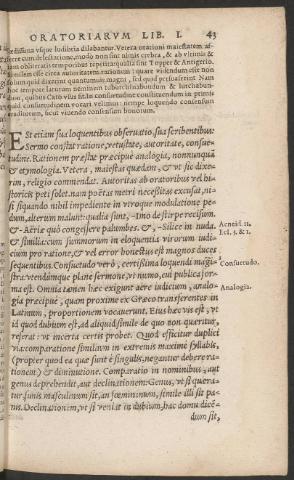 ORATORIARVM LIB. I. 43
dissima vsque ludibria dilabantur. Vetera orationi maiestatem af-
ferre cum delectatione, modo non sint nimis crebra, & ab vltimis &
iam obliteratis temporibus repetita: qualia sint Topper & Antigerio.
similem esse circa autoritatem rationem: quare videndum esse non
solum quid dixerint quantumuis magni, sed quid persuaserint. Nam
hoc tempore laturum neminem tuburchinabundum & lurchabun-
dum, quibus Cato vsus sit. In consuetudine constituendum in primis
quid consuetudinem vocari velimus: nempe loquendo consensum
eruditorum, sicut viuendo consensum bonorum.
ESt etiam sua loquentibus obseruatio, sua scribentibus.
Sermo constat ratione, vetustate, autoritate, consue-
tudine. Rationem præstat præcipuè analogia, nonnunquā
& etymologia. Vetera, maiestas quædam, & vt sic dixe-
rim, religio commendat. Autoritas ab oratoribus vel hi-
storicis peti solet. nam poëtas metri necessitas excusat, ni-
si siquando nihil impediente in vtroque modulatione pe-
dum, alterum malunt: qualia sunt, -Imo de stirpe recisum.
& -Aëriæ quò congessere palumbes. &, -Silice in nuda.
& similia: cùm summorum in eloquentia virorum iudi-
cium pro ratione, & vel error honestus est magnos duces
sequentibus. Consuetudo verò, certissima loquendi magi-
stra: vtendúmque planè sermone, vt numo, cui publica for-
ma est. Omnia tamen hæc exigunt acre iudicium, analo-
gia præcipuè, quam proxime ex Græco transferentes in
Latinum, proportionem vocauerunt. Eius hæc vis est, vt
id quod dubium est, ad aliquid simile de quo non quæritur,
referat: vt incerta certis probet. Quod efficitur duplici
via: comparatione similium in extremis maximè syllabis,
(propter quod ea quæ sunt è singulis, negantur debere ra-
tionem) & diminutione. Comparatio in nominibus, aut
genus deprehendit, aut declinationem: Genus, vt si quæra-
tur funis masculinum sit, an fœmininum, simile illi sit pa-
nis. Declinationem, vt si veniat in dubium, hac domu dicē-
dum sit,
Aeneid. 12.
Ecl. 1. & 1.
Consuetudo.
Analogia.